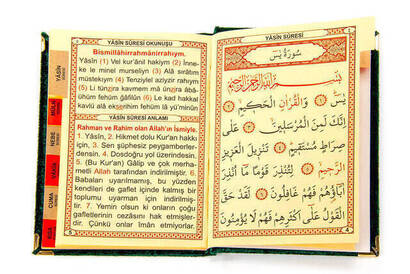 YÂSÎN SÛRESİ OKUNUŞU
Bismillâhirrahmânirrahıym.
1) Yâsîn (1) Vel kur'ânil hakiym (2) İnne-
ke le minel murseliyn (3) Alâ sırâtım
müstekıym (4) Tenziylel aziyzir rahıym
(5) Li tünzira kavmem mâ ünzira âbâ-
ühüm fehüm ğâfilûn (6) Le kad hakkal
kavlü alâ ekserihim fehüm lâ yü'minûn
YÂSÎN SÛRESİ ANLAMI
Rahman ve Rahim olan Allah'ın İsmiyle.
1. Yâsîn, 2. Hikmet dolu Kur'an hakkı
için, 3. Sen şüphesiz peygamberler-
densin. 4. Dosdoğru yol üzerindesin.
5. (Bu Kur'an) Gâlip ve çok merha-
metli Allah tarafından indirilmiştir. 6.
Babaları uyarılmamış, bu yüzden
kendileri de gaflet içinde kalmış bir
toplumu uyarman için indirilmiştir.
7. Yemin olsun ki onların çoğu
gafletlerinin cezasını hak etmişler-
dir. Çünkü onlar iman etmiyorlar.
YÂSÎN
MÜLK
NEBE
CUMA
YÂSÎN SÛRESİ
سُورَةُ يٰسٓ
بِسْمِ اللّٰهِ الرَّحْمٰنِ الرَّحِيمِ
يٰسٓ ﴿١﴾ وَالْقُرْاٰنِ الْحَكِيمِ ﴿٢﴾
اِنَّكَ لَمِنَ الْمُرْسَلِينَ ﴿٣﴾ عَلٰى
صِرَاطٍ مُسْتَقِيمٍ ﴿٤﴾ تَنْزِيلَ الْعَزِيزِ
الرَّحِيمِ ﴿٥﴾ لِتُنْذِرَ قَوْمًا مَٓا اُنْذِرَ
اٰبَٓاؤُ۬هُمْ فَهُمْ غَافِلُونَ ﴿٦﴾ لَقَدْ حَقَّ
الْقَوْلُ عَلٰٓى اَكْثَرِهِمْ فَهُمْ لَا يُؤْمِنُونَ